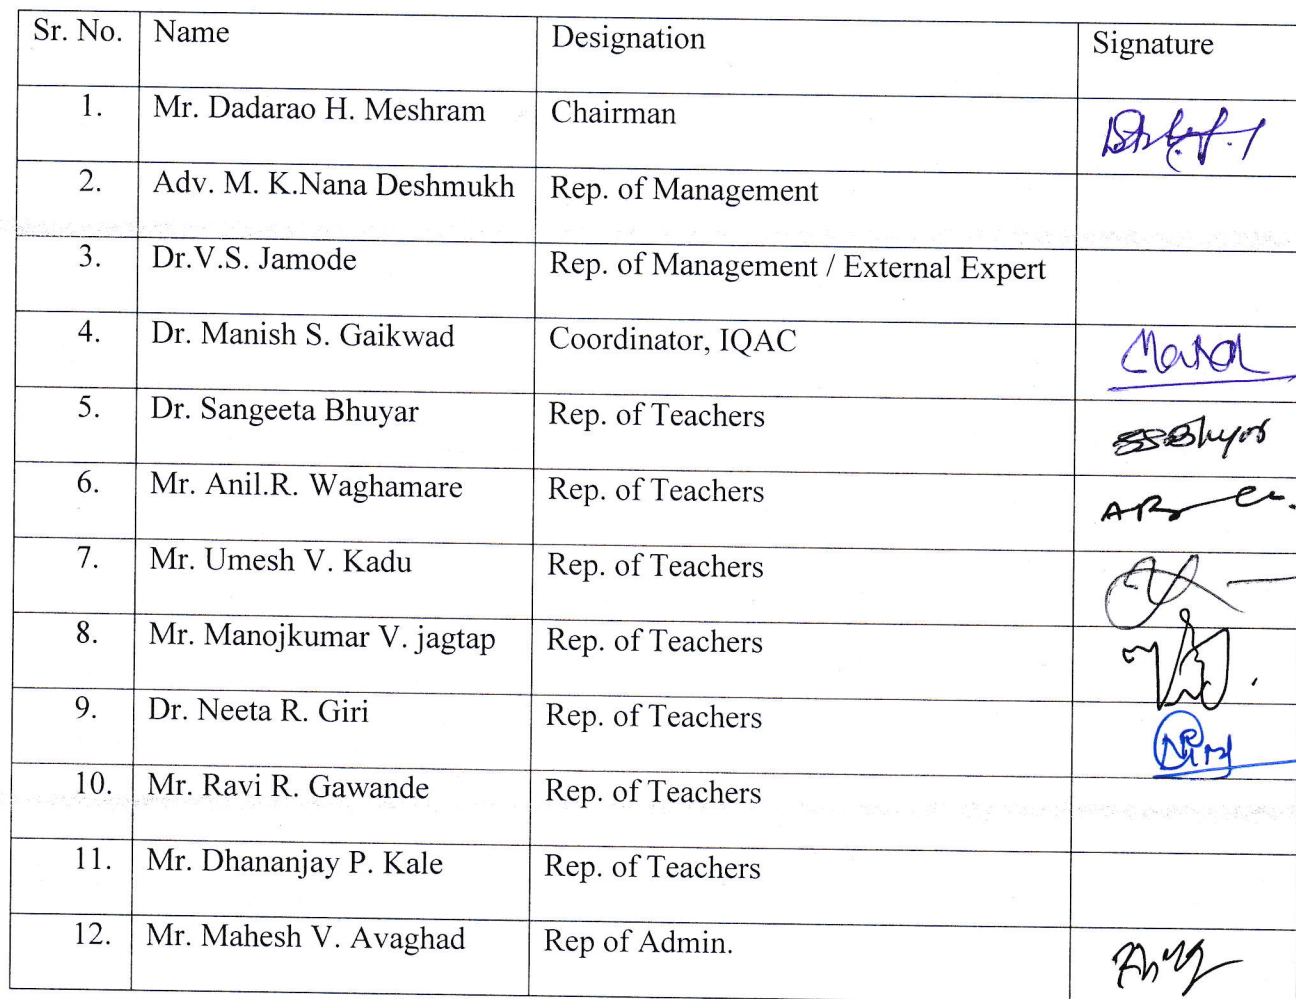 Sr. No. Name Designation Signature
1. Mr. Dadarao H. Meshram Chairman
2. Adv. M. K.Nana Deshmukh Rep. of Management
3. Dr.V.S. Jamode Rep. of Management / External Expert
4. Dr. Manish S. Gaikwad Coordinator, IQAC
5. Dr. Sangeeta Bhuyar Rep. of Teachers SSBhuyar
6. Mr. Anil.R. Waghamare Rep. of Teachers
7. Mr. Umesh V. Kadu Rep. of Teachers
8. Mr. Manojkumar V. jagtap Rep. of Teachers
9. Dr. Neeta R. Giri Rep. of Teachers
10. Mr. Ravi R. Gawande Rep. of Teachers
11. Mr. Dhananjay P. Kale Rep. of Teachers
12. Mr. Mahesh V. Avaghad Rep of Admin.